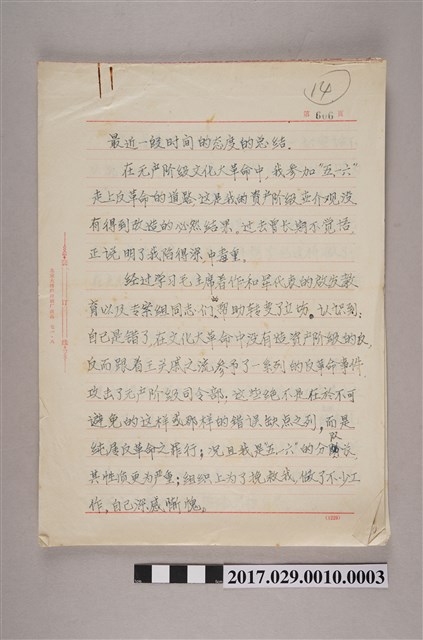 14
第 606 页
最近一段时间的态度的总结.
在无产阶级文化大革命中,我参加"五·一六"
走上反革命的道路.这是我的资产阶级世界观没
有得到改造的必然结果.过去曾长期不觉悟,
正说明了我陷得深、中毒重.
经过学习毛主席著作和军代表的启发教
育以及专案组同志们的帮助转变了立场。认识到:
自己是错了,在文化大革命中没有造资产阶级的反,
反而跟着王关戚之流参予了一系列的反革命事件,
攻击了无产阶级司令部,这些绝不是在於不可
避免的这样或那样的错误缺点之列,而是
纯属反革命之罪行;况且我是"五一六"的分子,
其性质更为严重;组织上为了挽救我,做了不少工
作,自己深感惭愧。
(1238)
2017.029.0010.0003